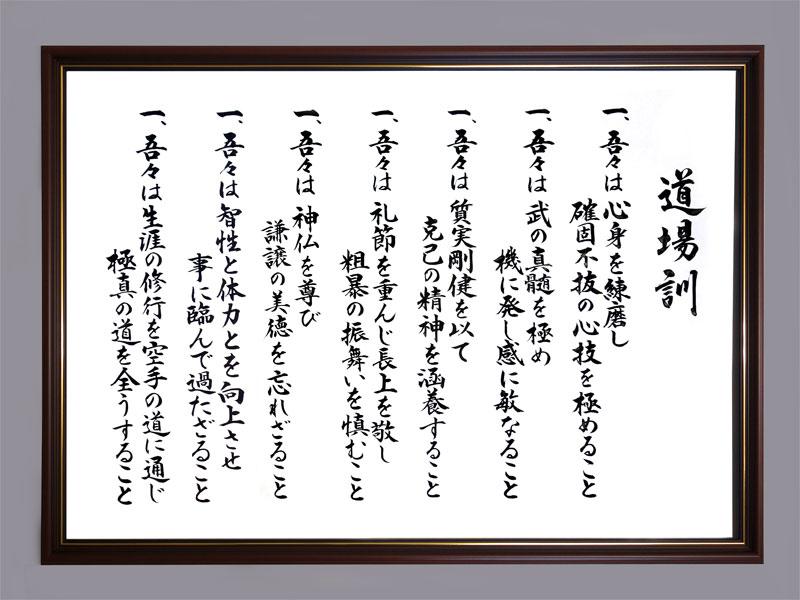 道場訓
一、吾々は心身を練磨し
確固不抜の心技を極めること
一、吾々は武の真髄を極め
機に発し感に敏なること
一、吾々は質実剛健を以て
克己の精神を涵養すること
一、吾々は礼節を重んじ長上を敬し
粗暴の振舞いを慎むこと
一、吾々は神仏を尊び
謙譲の美徳を忘れざること
一、吾々は智性と体力とを向上させ
事に臨んで過たざること
一、吾々は生涯の修行を空手の道に通じ
極真の道を全うすること